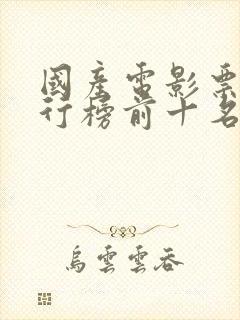 國產電影票
行榜前十名
烏雲雲吞